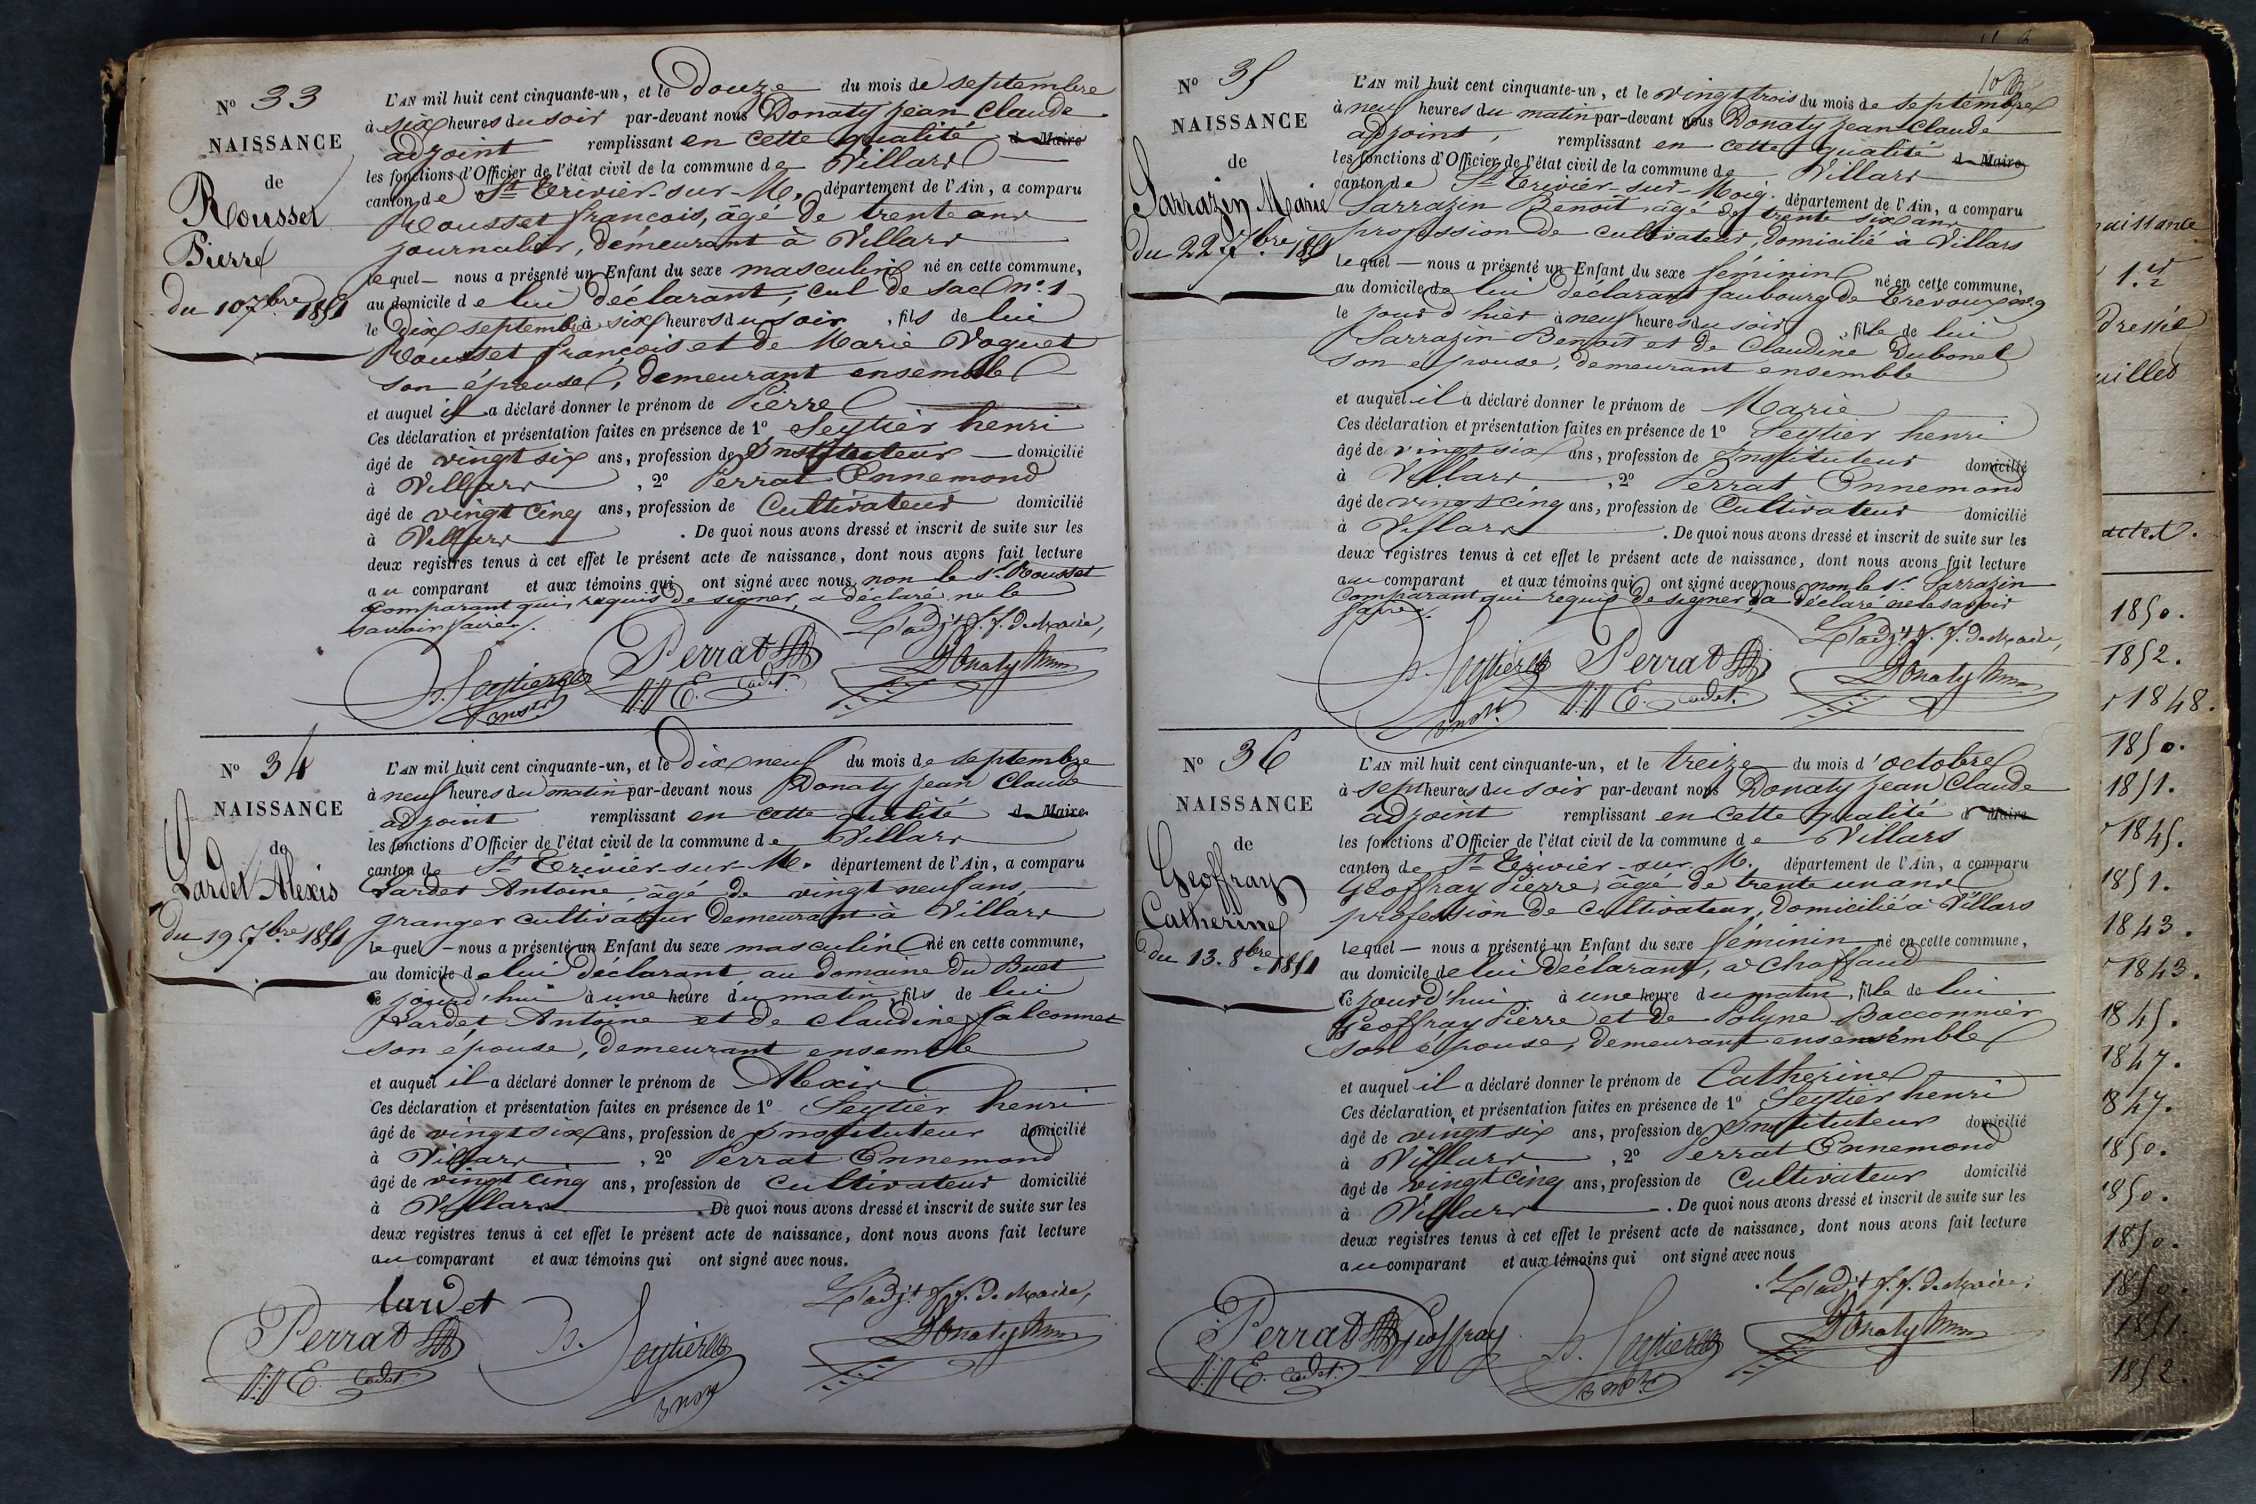 N° 33
NAISSANCE
de
Rousset
Pierre
du 10 7bre 1851
L'AN mil huit cent cinquante-un, et le douze du mois de septembre
à six heures du soir par-devant nous Donaty jean Claude
adjoint remplissant en cette qualité d Maire
les fonctions d'Officier de l'état civil de la commune de Villars
canton de St Trivier-sur-M. département de l'Ain, a comparu
Rousset françois, âgé de trente ans
journalier, demeurant à Villars
lequel nous a présenté un Enfant du sexe masculin né en cette commune,
au domicile de lui déclarant, cul de sac n° 1
le dix septembre à six heures du soir, fils de lui
Rousset françois et de Marie Voguet
son épouse, demeurant ensemble
et auquel il a déclaré donner le prénom de Pierre
Ces déclaration et présentation faites en présence de 1° Seytier henri
âgé de vingt six ans, profession de Instituteur domicilié
à Villars, 2° Perrat Ennemond
âgé de vingt cinq ans, profession de Cultivateur domicilié
à Villars. De quoi nous avons dressé et inscrit de suite sur les
deux registres tenus à cet effet le présent acte de naissance, dont nous avons fait lecture
au comparant et aux témoins qui ont signé avec nous, non le sr Rousset
comparant qui, requis de signer, a déclaré ne le
savoir faire.
L'adjt f. f. de Maire,
h. Seytier Perrat Donaty
inst. E. Cadet.
N° 34
NAISSANCE
de
Lardet Alexis
du 19 7bre 1851
L'AN mil huit cent cinquante-un, et le dix neuf du mois de septembre
à neuf heures du matin par-devant nous Donaty jean Claude
adjoint remplissant en cette qualité d Maire
les fonctions d'Officier de l'état civil de la commune de Villars
canton de St Trivier-sur-M. département de l'Ain, a comparu
Lardet Antoine, âgé de vingt neuf ans,
granger cultivateur demeurant à Villars
lequel nous a présenté un Enfant du sexe masculin né en cette commune,
au domicile de lui déclarant au domaine du Buet
ce jourd'hui à une heure du matin, fils de lui
Lardet Antoine et de Claudine falconnet
son épouse, demeurant ensemble
et auquel il a déclaré donner le prénom de Alexis
Ces déclaration et présentation faites en présence de 1° Seytier henri
âgé de vingt six ans, profession de instituteur domicilié
à Villars, 2° Perrat Ennemond
âgé de vingt cinq ans, profession de cultivateur domicilié
à Villars. De quoi nous avons dressé et inscrit de suite sur les
deux registres tenus à cet effet le présent acte de naissance, dont nous avons fait lecture
au comparant et aux témoins qui ont signé avec nous.
lardet L'adjt f. f. de Maire,
Perrat h. Seytier Donaty
E. Cadet
N° 35
NAISSANCE
de
Sarrazin Marie
du 22 7bre 1851
L'AN mil huit cent cinquante-un, et le vingt trois du mois de septembre
à neuf heures du matin par-devant nous Donaty jean Claude
adjoint, remplissant en cette qualité d Maire
les fonctions d'Officier de l'état civil de la commune de Villars
canton de St Trivier-sur-Moig. département de l'Ain, a comparu
Sarrazin Benoit, âgé de trente six ans
profession de cultivateur, domicilié à Villars
lequel nous a présenté un Enfant du sexe féminin né en cette commune,
au domicile de lui déclarant faubourg de Trevoux n° 9
le jour d'hier à neuf heures du soir, fille de lui
Sarrazin Benoit et de Claudine Dubonet
son epouse, demeurant ensemble
et auquel il a déclaré donner le prénom de Marie
Ces déclaration et présentation faites en présence de 1° Seytier henri
âgé de vingt six ans, profession de instituteur domicilié
à Villars, 2° Perrat Ennemond
âgé de vingt cinq ans, profession de Cultivateur domicilié
à Villars. De quoi nous avons dressé et inscrit de suite sur les
deux registres tenus à cet effet le présent acte de naissance, dont nous avons fait lecture
au comparant et aux témoins qui ont signé avec nous non le sr Sarrazin
comparant qui requis de signer, a déclaré ne le savoir
faire.
L'adjt f. f. de Maire,
h. Seytier Perrat Donaty
inst. E. Cadet.
N° 36
NAISSANCE
de
Geoffray
Catherine
du 13 8bre 1851
L'AN mil huit cent cinquante-un, et le treize du mois d'octobre
à sept heures du soir par-devant nous Donaty jean Claude
adjoint remplissant en cette qualité d Maire
les fonctions d'Officier de l'état civil de la commune de Villars
canton de St Trivier-sur-M. département de l'Ain, a comparu
Geoffray Pierre, âgé de trente un ans
profession de cultivateur, domicilié à Villars
lequel nous a présenté un Enfant du sexe féminin né en cette commune,
au domicile de lui déclarant, a Chaffaud
ce jourd'hui à une heure du matin, fille de lui
Geoffray Pierre et de Polyne Bacconnier
son épouse, demeurant ensemsemble
et auquel il a déclaré donner le prénom de Catherine
Ces déclaration et présentation faites en présence de 1° Seytier henri
âgé de vingt six ans, profession de Instituteur domicilié
à Villars, 2° Perrat Ennemond
âgé de vingt cinq ans, profession de cultivateur domicilié
à Villars. De quoi nous avons dressé et inscrit de suite sur les
deux registres tenus à cet effet le présent acte de naissance, dont nous avons fait lecture
au comparant et aux témoins qui ont signé avec nous
L'adjt f. f. de Maire,
Perrat Geoffray h. Seytier Donaty
E. Cadet.
naissance
1.er
dressée
actes.
1850.
1852.
1848.
1850.
1851.
1845.
1851.
1843.
1843.
1845.
1847.
1847.
1850.
1850.
1850.
1850.
1851.
1852.